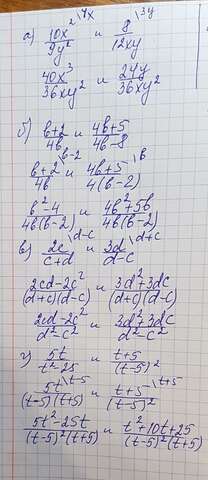 а) 10x²\4x / 9y² и 8\3y / 12xy
40x³ / 36xy² и 24y / 36xy²
б) b+2 / 4b и 4b+5 / 4b-8
b+2\b-2 / 4b и 4b+5\b / 4(b-2)
b²-4 / 4b(b-2) и 4b²+5b / 4b(b-2)
в) 2c\d-c / c+d и 3d\d+c / d-c
2cd-2c² / (d+c)(d-c) и 3d²+3dc / (d+c)(d-c)
2cd-2c² / d²-c² и 3d²+3dc / d²-c²
г) 5t / t²-25 и t+5 / (t-5)²
5t\t-5 / (t-5)(t+5) и t+5\t+5 / (t-5)²
5t²-25t / (t-5)²(t+5) и t²+10t+25 / (t-5)²(t+5)